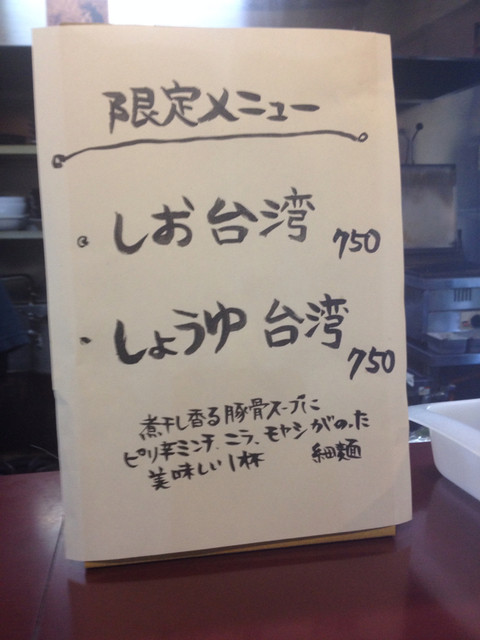 限定メニュー
しお台湾 750
しょうゆ台湾 750
煮干し香る豚骨スープに
ピリ辛ミンチ、ニラ、モヤシがのった
美味しい1杯 細麺